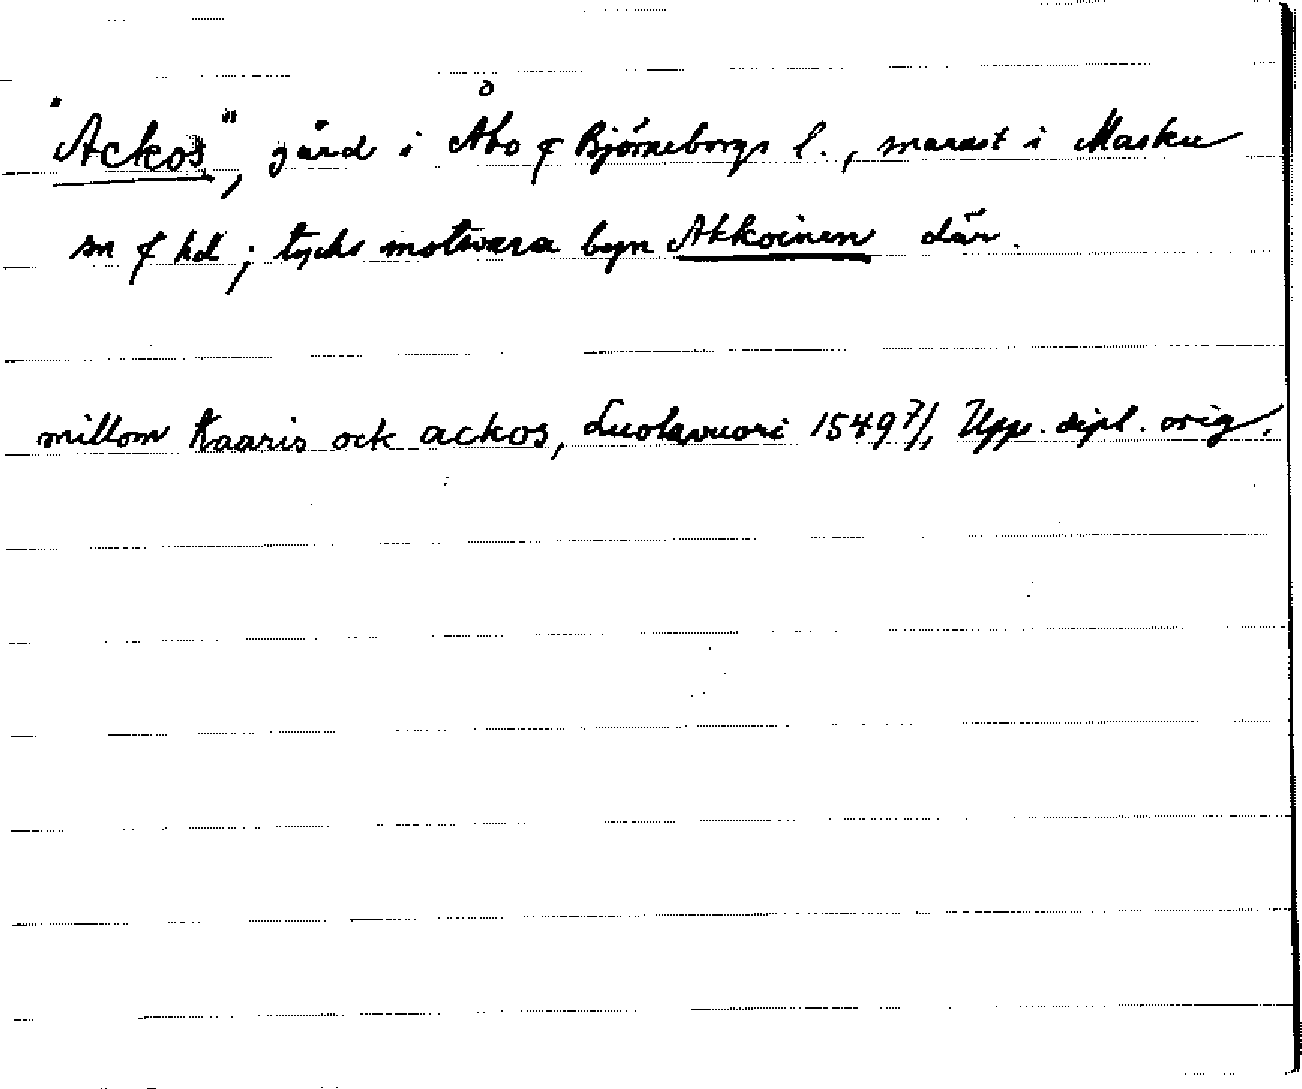 "Ackos", gård i Åbo o Björneborgs l., snarast i Masku
sn o hd; tycks motsvara byn Akkoinen där.
millom Kaaris ock ackos, Luolavuori 1549 7/1, Upps. dipl. orig.